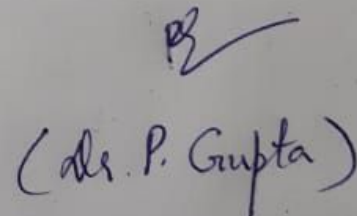 (Dr. P. Gupta)